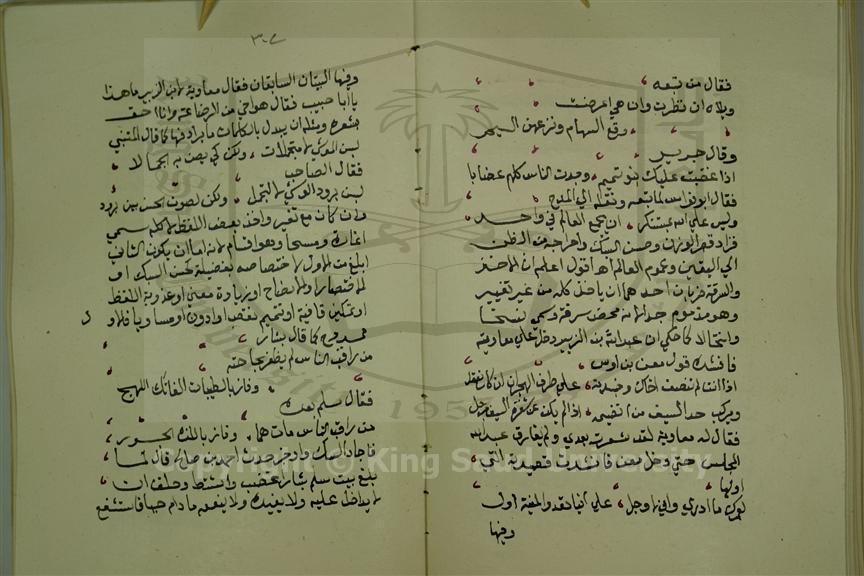 فقال من تبعه
ويلاه ان نظرت وان هي اعرضت
وقع السهام ونزعهن اليم
وقال جرير
اذا غضبت عليك بنو تميم وجدت الناس كلهم غضابا
فقال ابو نواس لما تبعه ونقله الي المدح
وليس علي الله بمستنكر ان يجمع العالم في واحد
فزاد قصر الوزن وحسن السبك واخراجه من الظن
الي اليقين وعموم العالم اهـ اقول اعلم ان الاخذ
والسرقة ضربان احدهما ان ياخذ كله من غير تغيير
وهو مذموم جدا لانه محض سرقة وسمي نسخا
وانتحالا كما حكي ان عبد الله بن الزبير دخل علي معاوية
فانشد قول معن بن اوس
اذا انت لم تنصف اخاك وجدته علي طرف الهجران ان كان يعقل
ويركب حد السيف من ان تضيمه اذا لم يكن عن شفرة السيف مزحل
فقال له معاوية لقد شعرت بعدي ولم يفارق عبد الله
المجلس حتي دخل معن فانشد قصيدته التي
اولها
لعمرك ما ادري واني لاوجل علي اينا تعدو المنية اول
وفيها
٣٠٧
وفيها البيتان السابقان فقال معاوية لابن الزبير ما هذا
يا ابا حبيب فقال هو اخي من الرضاعة وانا احق
بشعره ومثله ان يبدل بالكلمات ما يرادفها كما قال المتنبي
لبسن الوشي لا متجملات ولكن كي يصن به الجمالا
فقال الصاحب
لبسن برود الوشي لا لتجمل ولكن لصون الحسن بين برود
وان كان مع تغيير واخذ بعض اللفظ لا كله سمي
اغارة ومسخا وهو اقسام لانه اما ان يكون الثاني
ابلغ من الاول لاختصاصه بفضيلة كحسن السبك او
الاختصار او الايضاح او زيادة معني او عذوبة اللفظ
او تمكين قافية او تتميم نقص او ادون او مساويا فالاو
ل
ممدوح كما قال بشار
من راقب الناس لم يظفر بحاجته
وفاز بالطيبات الفاتك اللهج
فقال سلم بعده
من راقب الناس مات هما وفاز باللذة الجسور
فاجاد السبك واوجز حدث احمد بن صالح قال لما
بلغ بيت سلم بشارا غضب واستشاط وحلف ان
لا يدخل عليه ولا يفيده ولا ينفعه ما دام حيا فاستشفع
Copyright © King Saud University
1957